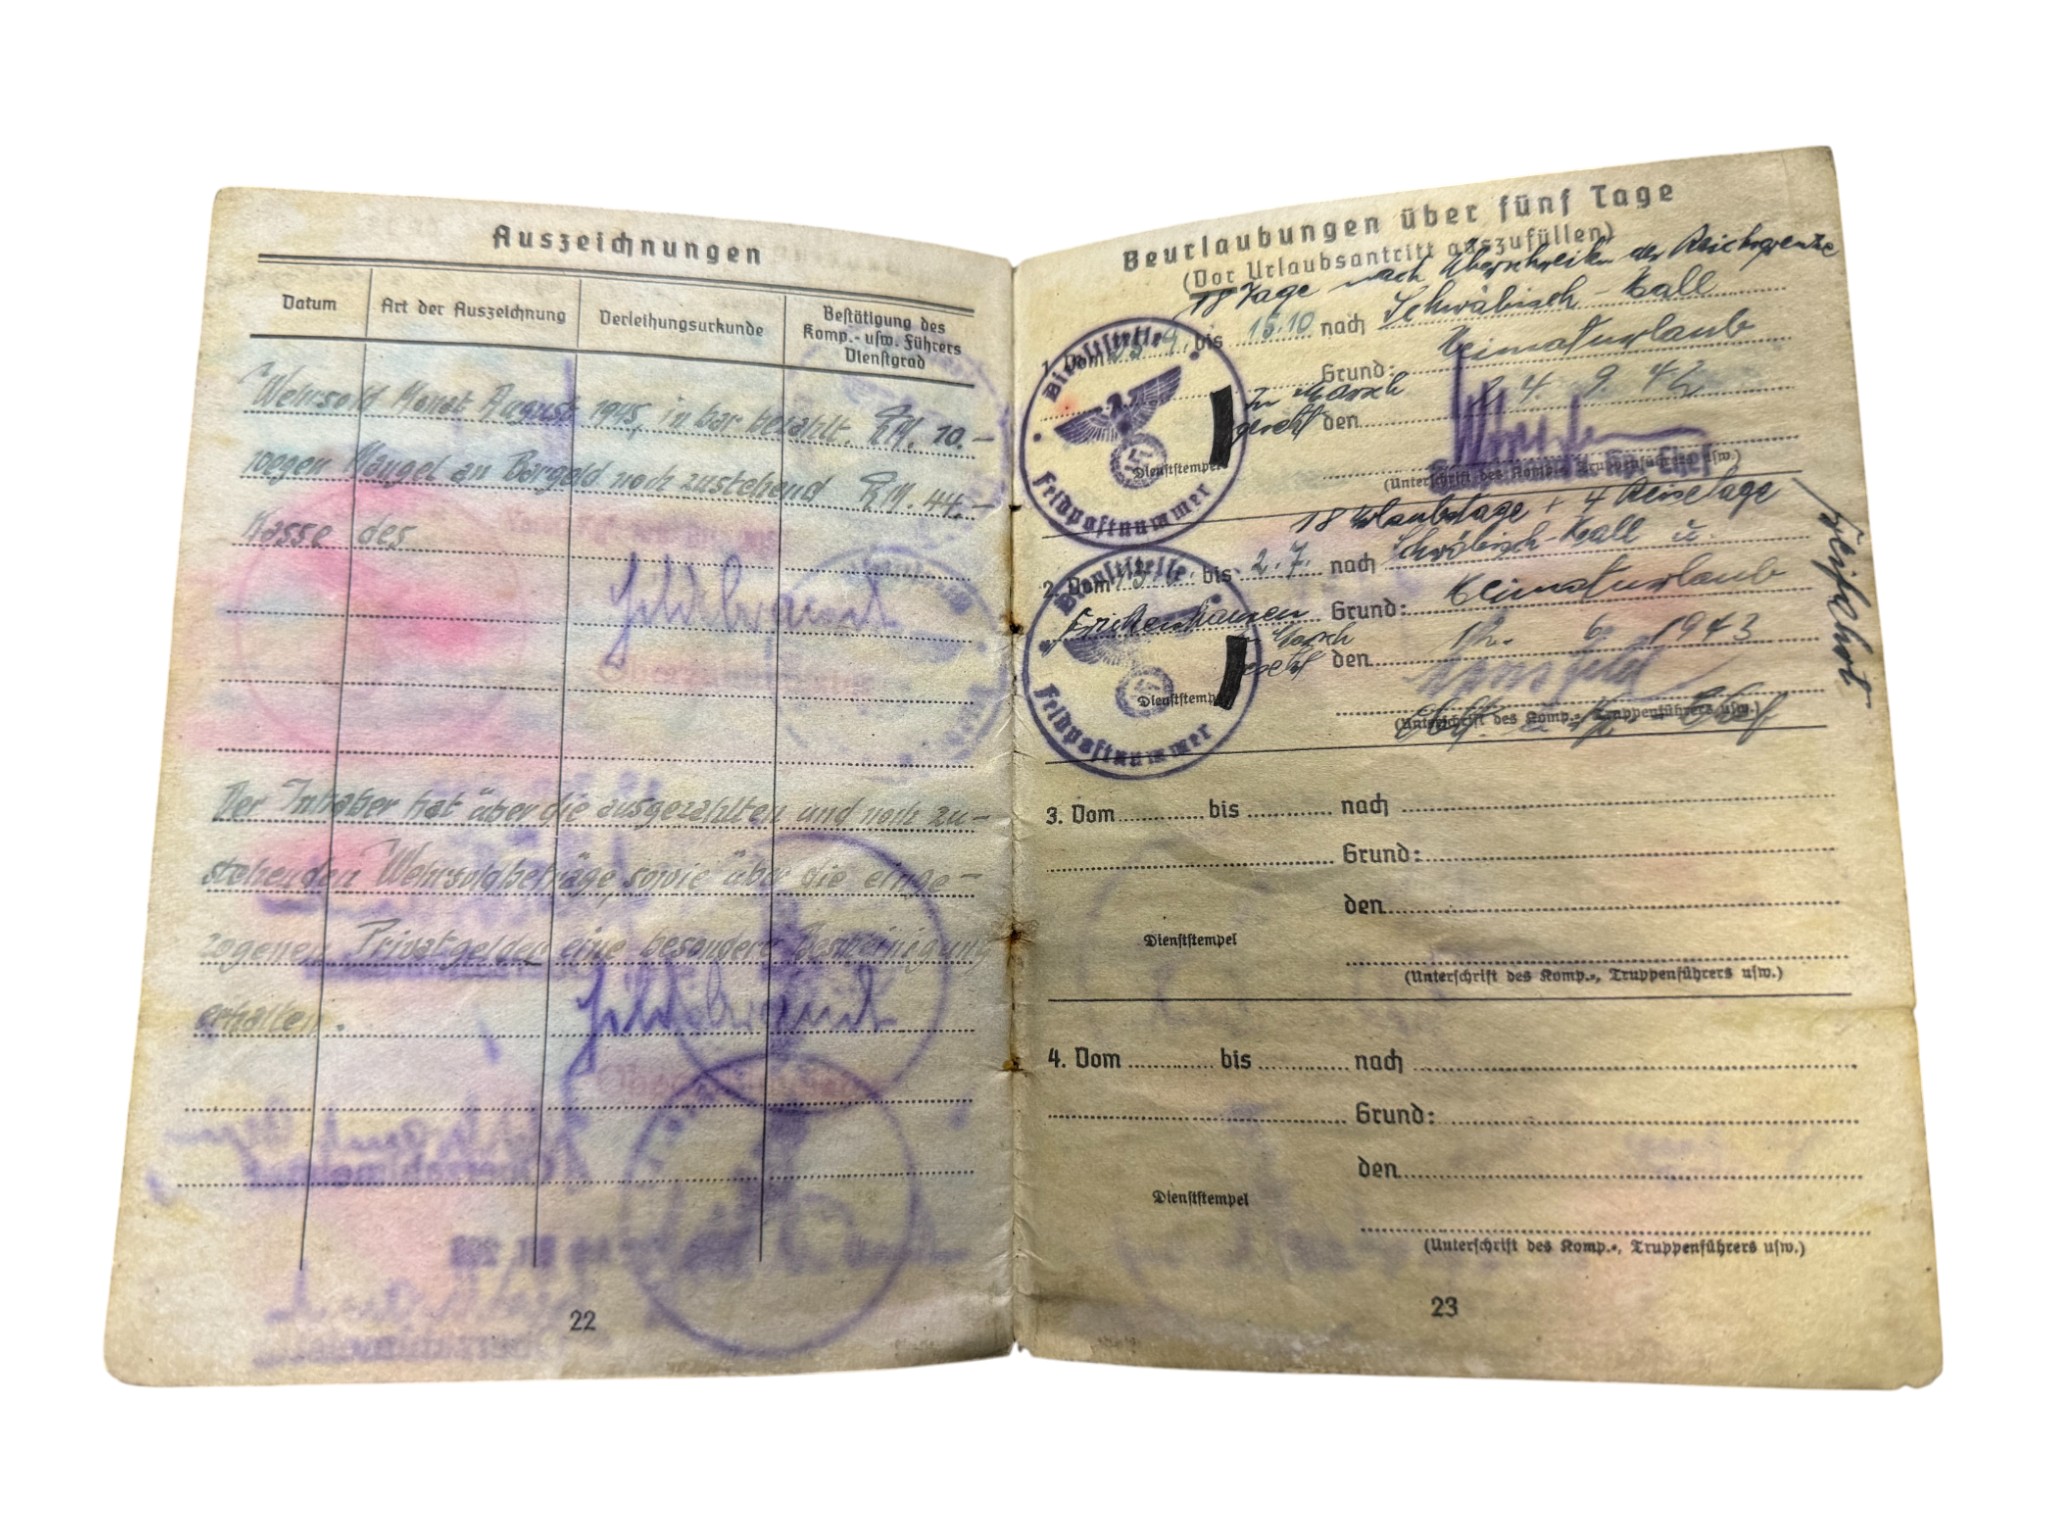 Auszeichnungen
Datum
Art der Auszeichnung
Verleihungsurkunde
Bestätigung des
Komp.- usw. Führers
Dienstgrad
Wehrsold Monat August 1945, in bar bezahlt. RM. 10.-
wegen Mangel an Bargeld noch zustehend RM. 44.-
Kasse des
Hildebrandt
Der Inhaber hat über die ausgezahlten und noch zu-
stehenden Wehrsoldbeträge sowie über die einge-
zogenen Privatgelder eine besondere Bescheinigung
erhalten.
Hildebrandt
22
Beurlaubungen über fünf Tage
(Vor Urlaubsantritt auszufüllen)
18 Tage nach Überschreiten der Reichsgrenze
1. Vom bis 15.10 nach Schwäbisch-Hall
Grund: Heimaturlaub
In Marsch
gesetzt den 24. 9. 42
Dienststempel
(Unterschrift des Komp.-, Truppenführers usw.)
Dienststelle
Feldpostnummer
18 Urlaubstage + 4 Reisetage
2. Vom bis 2.7. nach Schwäbisch-Hall u.
Frickenhausen Grund: Heimaturlaub
Marsch
gesetzt den 12. 6. 1943
Dienststempel
(Unterschrift des Komp.-, Truppenführers usw.)
Dienststelle
Feldpostnummer
3. Vom bis nach
Grund:
den
Dienststempel
(Unterschrift des Komp.-, Truppenführers usw.)
4. Vom bis nach
Grund:
den
Dienststempel
(Unterschrift des Komp.-, Truppenführers usw.)
23